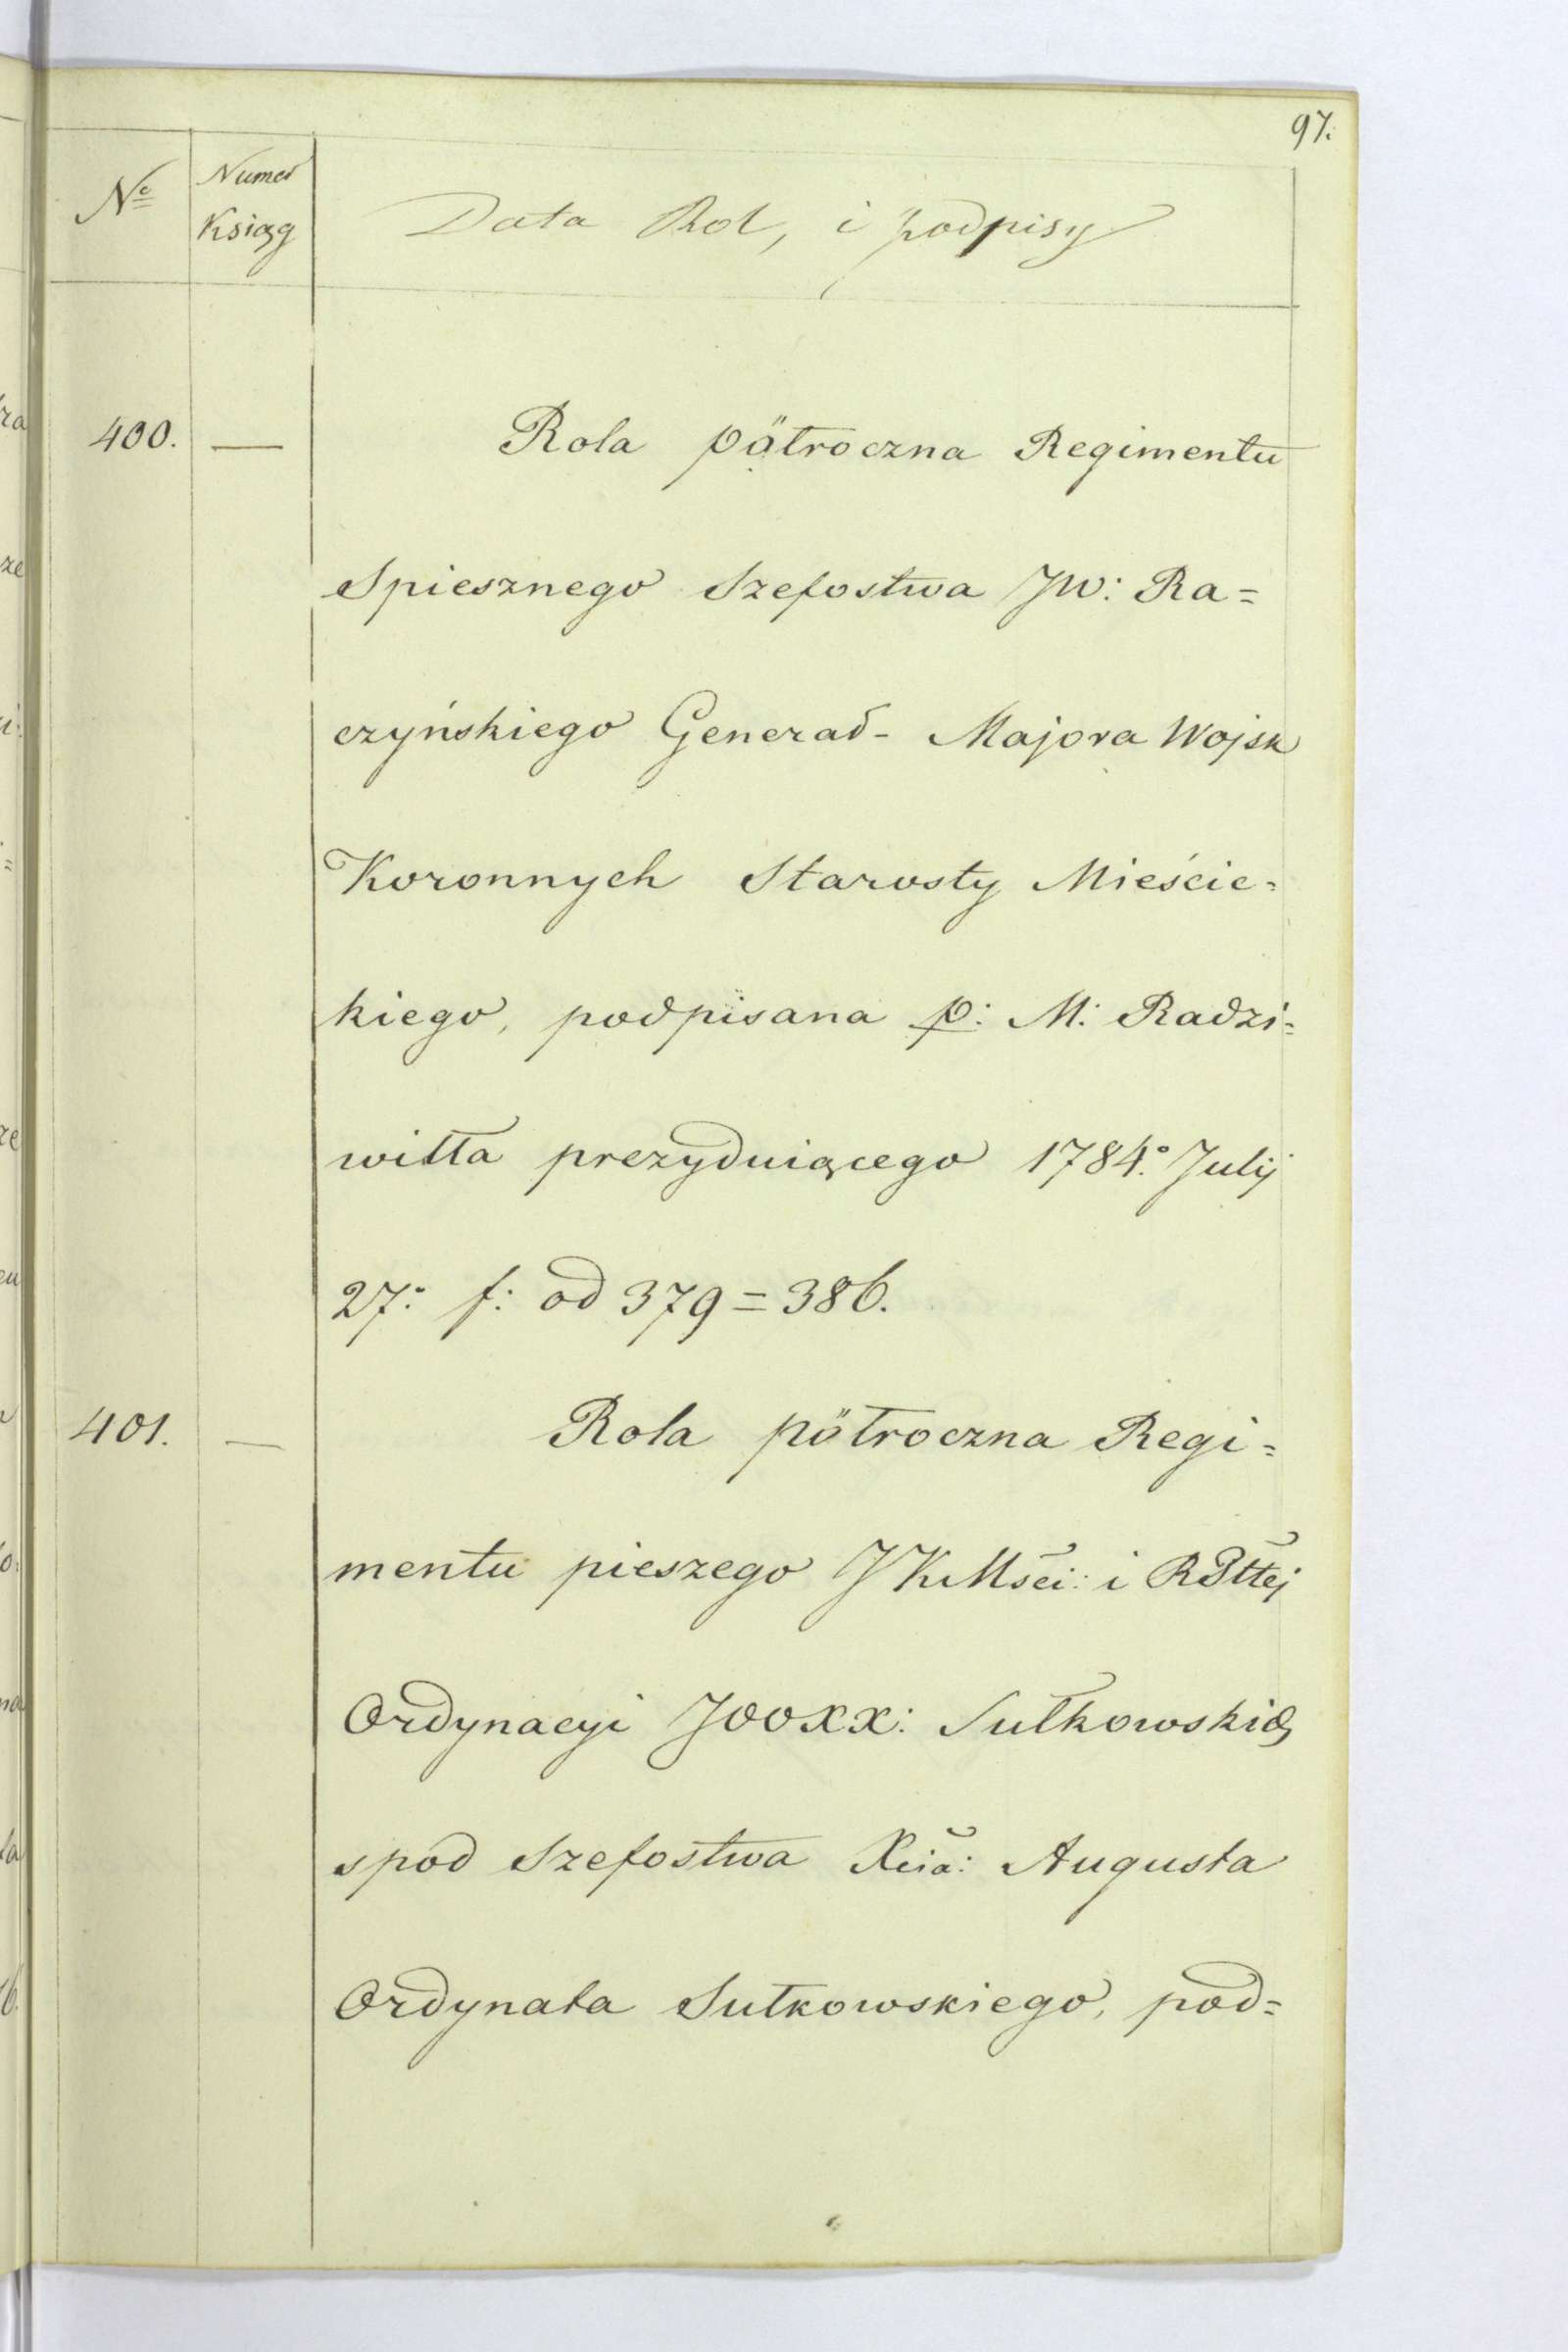 97.
No
Numer
Ksiąg
Data Rol, i podpisy
400. — Rola półroczna Regimentu
Spiesznego Szefostwa JW: Ra=
czyńskiego Generał- Majora Wojsk
Koronnych Starosty Mieście=
kiego, podpisana p: M: Radzi=
wiłła prezyduiącego 1784.° Julij
27.° f: od 379=386.
401. — Rola półroczna Regi=
mentu pieszego JKMści: i RPłtej
Ordynacyi JOOXX: Sułkowskich
spod Szefostwa Xcia: Augusta
Ordynata Sułkowskiego, pod=